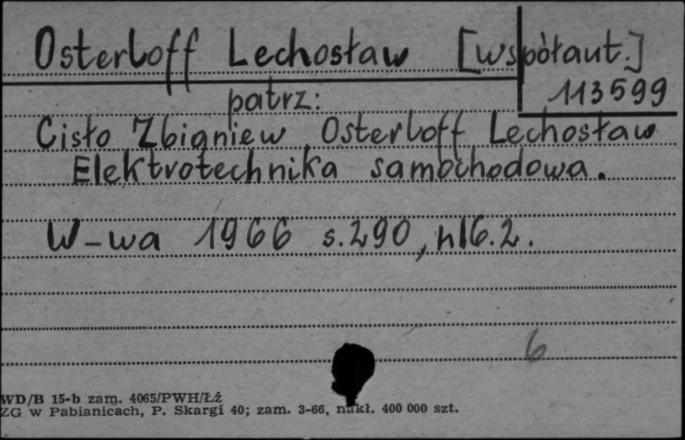 Osterloff Lechosław [współaut.]
113599
patrz:
Cisło Zbigniew, Osterloff Lechosław
Elektrotechnika samochodowa.
W-wa 1966 s.290, nl6.2.
6
WD/B 15-b zam. 4065/PWH/Łź
ZG w Pabianicach, P. Skargi 40; zam. 3-66, nakł. 400 000 szt.